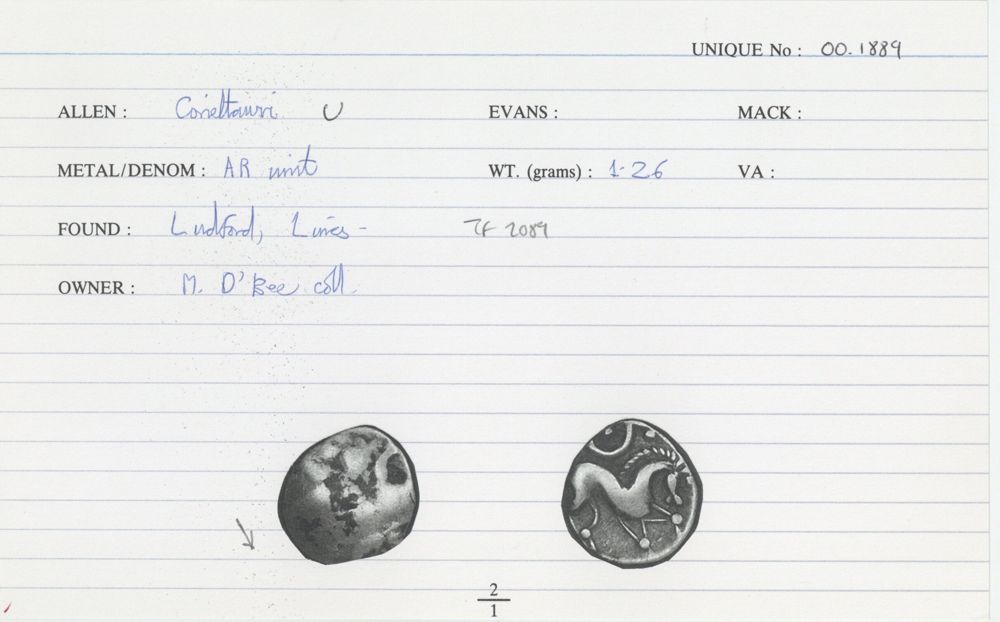 UNIQUE No : 00.1889
ALLEN : Corieltauvi U EVANS : MACK :
METAL/DENOM : AR unit WT. (grams) : 1.26 VA :
FOUND : Ludford, Lincs - TF 2089
OWNER : M. D'Bee coll.
2
1